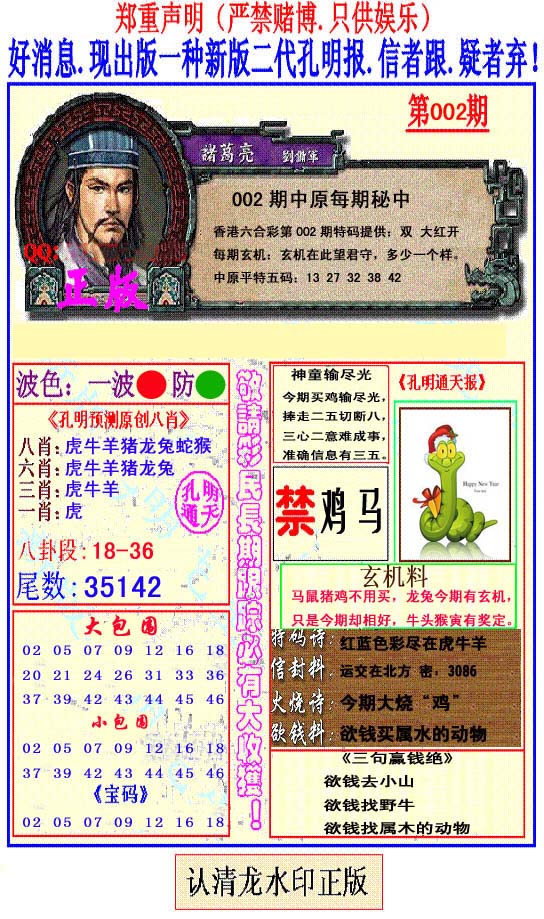 郑重声明（严禁赌博.只供娱乐）
好消息.现出版一种新版二代孔明报.信者跟.疑者弃!
第002期
諸葛亮 劉備軍
QQ:
正版
002期中原每期秘中
香港六合彩第002期特码提供：双 大红开
每期玄机：玄机在此望君守，多少一个样。
中原平特五码：13 27 32 38 42
波色：一波 防
《孔明预测原创八肖》
八肖：虎牛羊猪龙兔蛇猴
六肖：虎牛羊猪龙兔
三肖：虎牛羊
一肖：虎
孔明
通天
八卦段：18-36
尾数：35142
大包围
02 05 07 09 12 16 18
20 21 24 26 31 33 36
37 39 42 43 44 45 46
小包围
02 05 07 09 12 16 18
37 39 42 43 44 45 46
《宝码》
02 05 07 09 12 16 18
敬請彩民長期跟踪必有大收獲！
神童输尽光
今期买鸡输尽光，
捧走二五切断八，
三心二意难成事，
准确信息有三五。
《孔明通天报》
Happy New Year
禁 鸡马
玄机料
马鼠猪鸡不用买，龙兔今期有玄机，
只是今期却相好，牛头猴寅有奖定。
特码诗：红蓝色彩尽在虎牛羊
信封料：运交在北方 密，3086
火烧诗：今期大烧“鸡”
欲钱料：欲钱买属水的动物
《三句赢钱绝》
欲钱去小山
欲钱找野牛
欲钱找属木的动物
认清龙水印正版